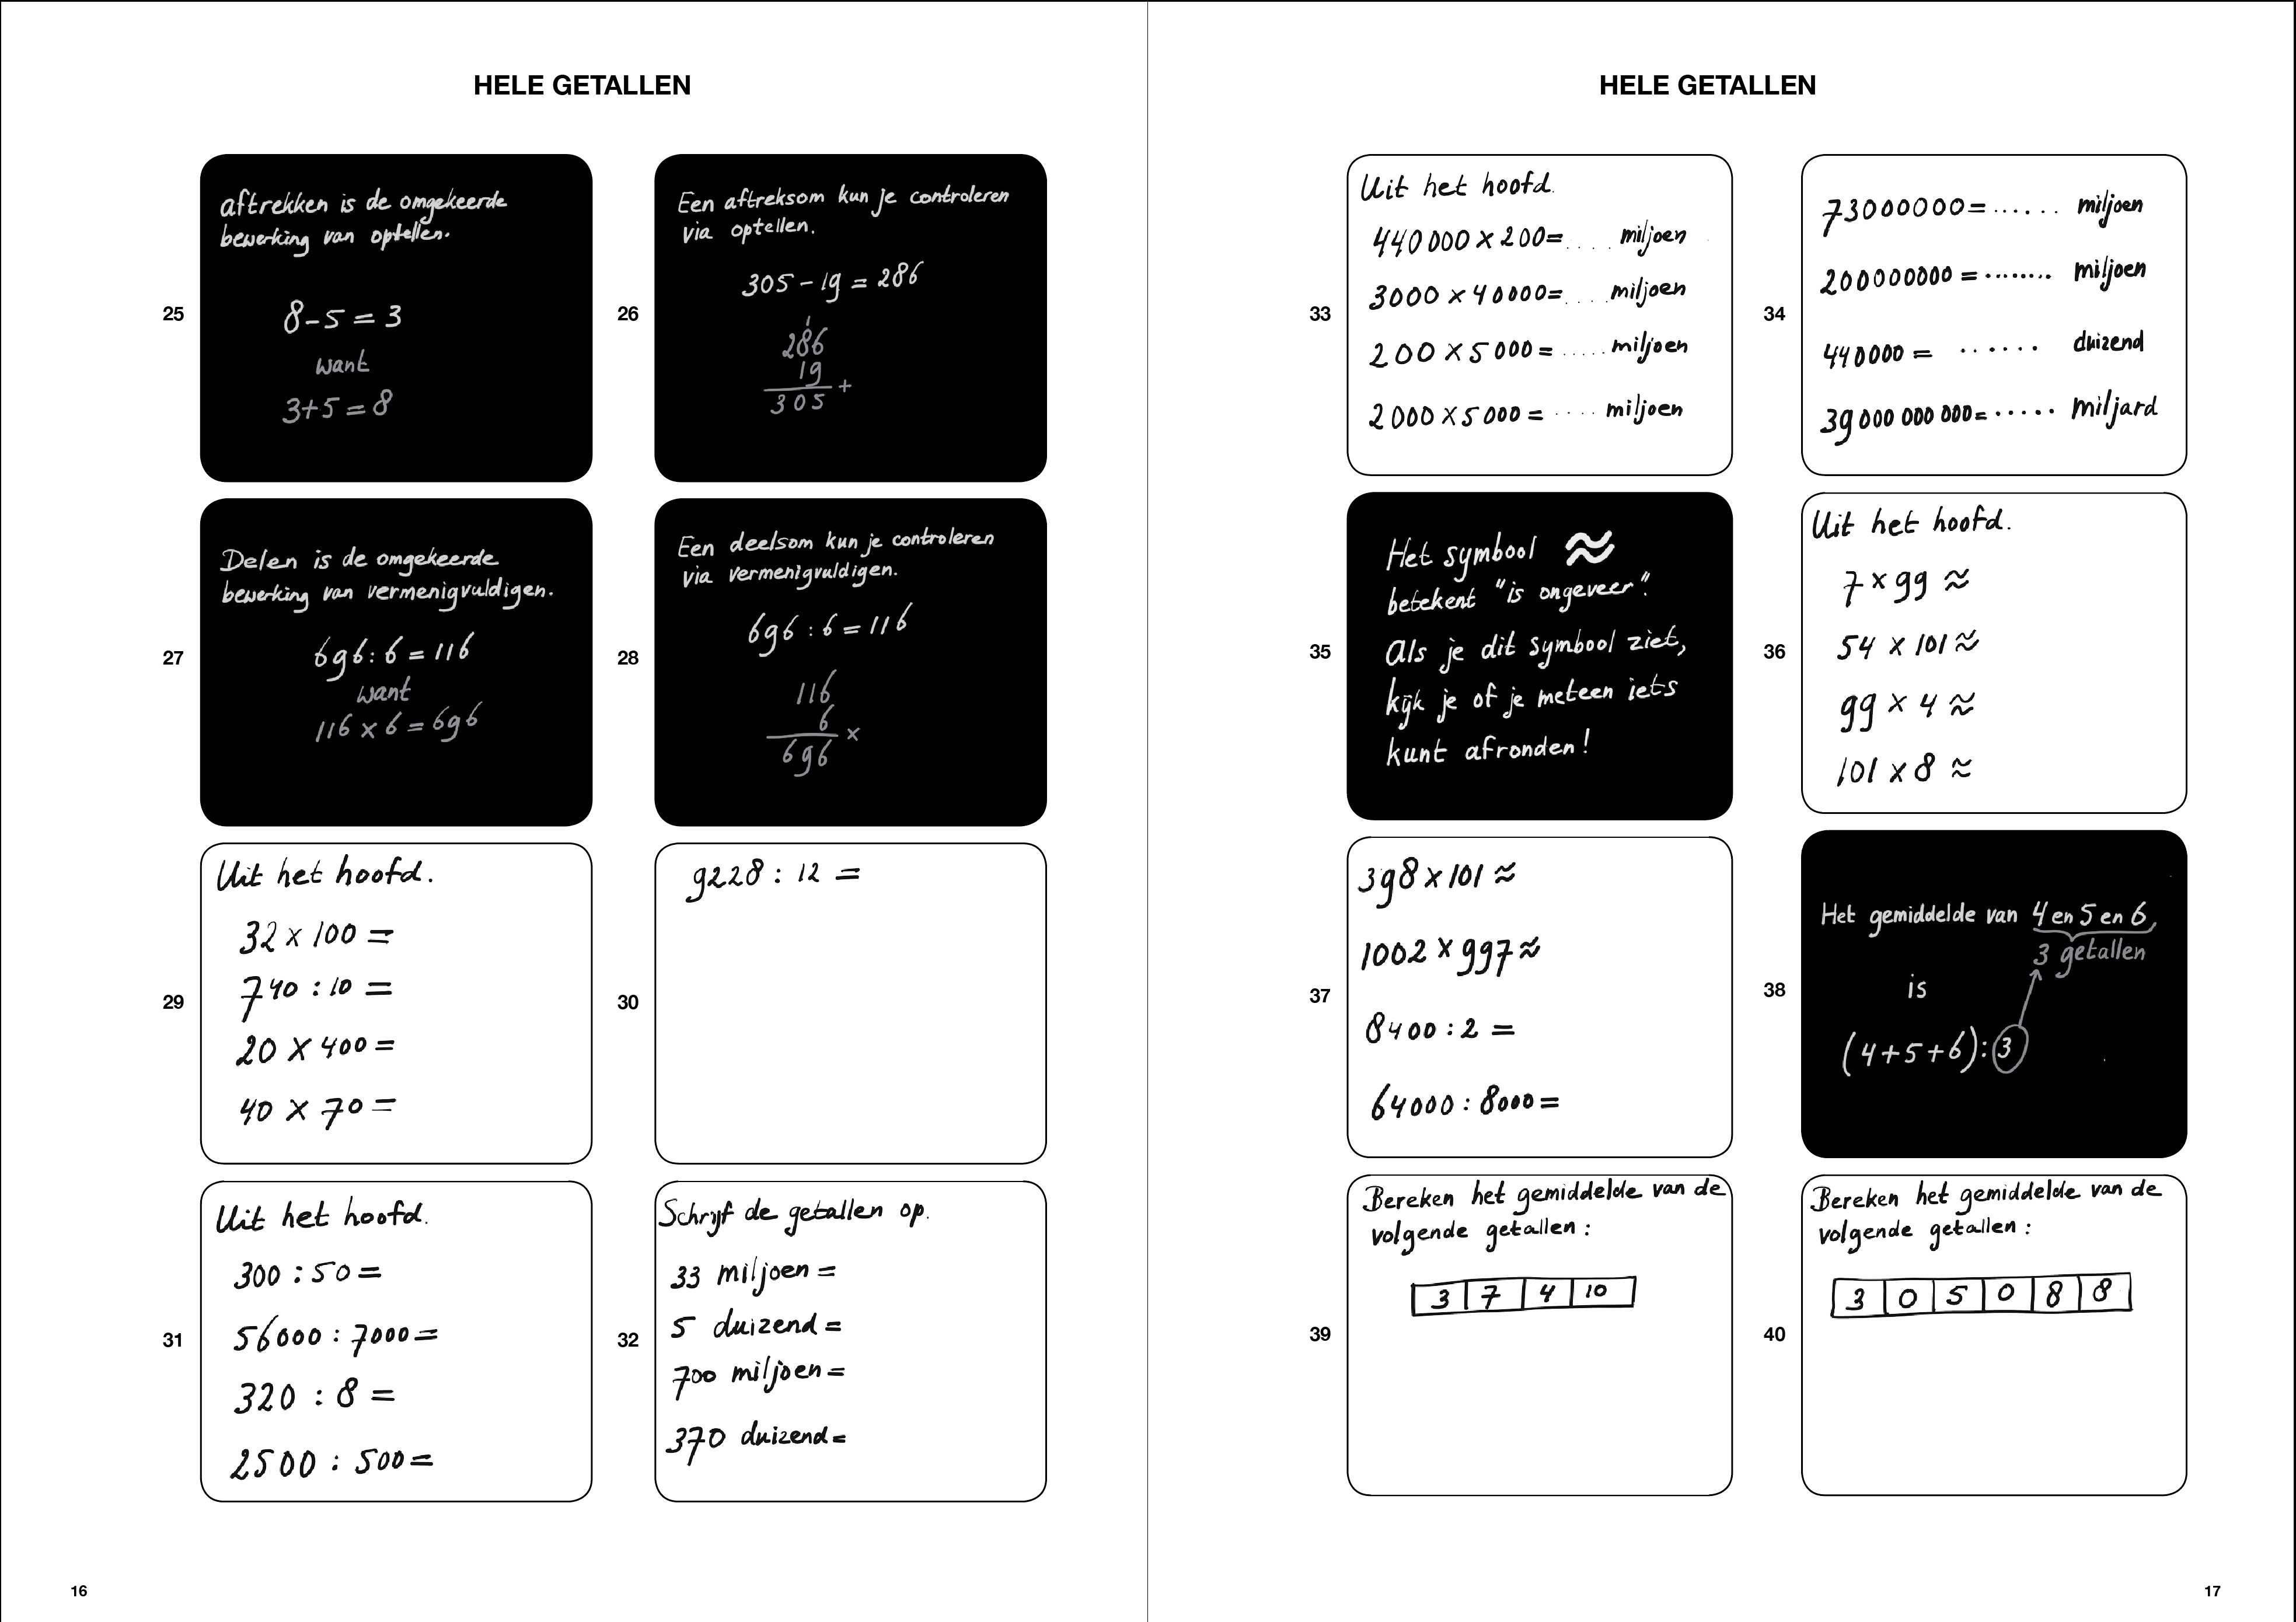 HELE GETALLEN
25
aftrekken is de omgekeerde
bewerking van optellen.
8-5=3
want
3+5=8
26
Een aftreksom kun je controleren
via optellen.
305-19=286
1
286
19
+
305
27
Delen is de omgekeerde
bewerking van vermenigvuldigen.
696:6=116
want
116×6=696
28
Een deelsom kun je controleren
via vermenigvuldigen.
696:6=116
116
6
×
696
29
Uit het hoofd.
32×100=
740:10=
20×400=
40×70=
30
9228:12=
31
Uit het hoofd.
300:50=
56000:7000=
320:8=
2500:500=
32
Schrijf de getallen op.
33 miljoen=
5 duizend=
700 miljoen=
370 duizend=
16
HELE GETALLEN
33
Uit het hoofd.
440000×200=.... miljoen
3000×40000=.... miljoen
200×5000=..... miljoen
2000×5000=.... miljoen
34
73000000=...... miljoen
200000000=........ miljoen
440000= ...... duizend
39000 000 000=..... miljard
35
Het symbool ≈
betekent "is ongeveer".
Als je dit symbool ziet,
kijk je of je meteen iets
kunt afronden!
36
Uit het hoofd.
7×99≈
54×101≈
99×4≈
101×8≈
37
398×101≈
1002×997≈
8400:2=
64000:8000=
38
Het gemiddelde van 4 en 5 en 6,
3 getallen
is
(4+5+6):3
39
Bereken het gemiddelde van de
volgende getallen:
3 7 4 10
40
Bereken het gemiddelde van de
volgende getallen:
3 0 5 0 8 8
17